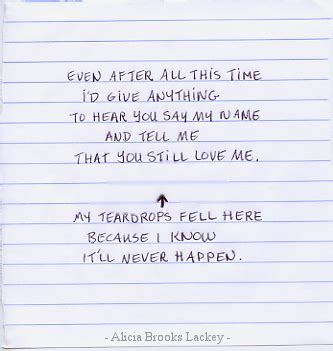 EVEN AFTER ALL THIS TIME
I'D GIVE ANYTHING
TO HEAR YOU SAY MY NAME
AND TELL ME
THAT YOU STILL LOVE ME.
MY TEARDROPS FELL HERE
BECAUSE I KNOW
IT'LL NEVER HAPPEN.
- Alicia Brooks Lackey -